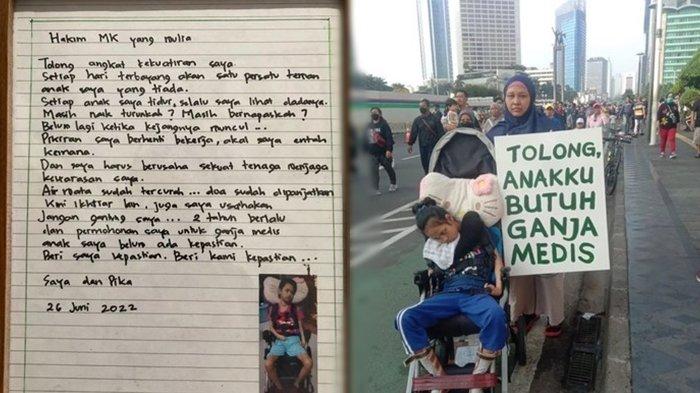 Hakim MK yang mulia
Tolong angkat kekuatiran saya.
Setiap hari terbayang akan satu persatu teman
anak saya yang tiada.
Setiap anak saya tidur, selalu saya lihat dadanya.
Masih naik turunkah? Masih bernapaskah?
Belum lagi ketika kejangnya muncul...
Pikiran saya berhenti bekerja, akal saya entah
kemana.
Dan saya harus berusaha sekuat tenaga menjaga
kewarasan saya.
Air mata sudah tercurah... doa sudah dipanjatkan
Kini ikhtiar lain, juga saya usahakan
Jangan gantung saya... 2 tahun berlalu
dan permohonan saya untuk ganja medis
anak saya belum ada kepastian.
Beri saya kepastian. Beri kami kepastian...
Saya dan Pika
26 Juni 2022
TOLONG,
ANAKKU
BUTUH
GANJA
MEDIS